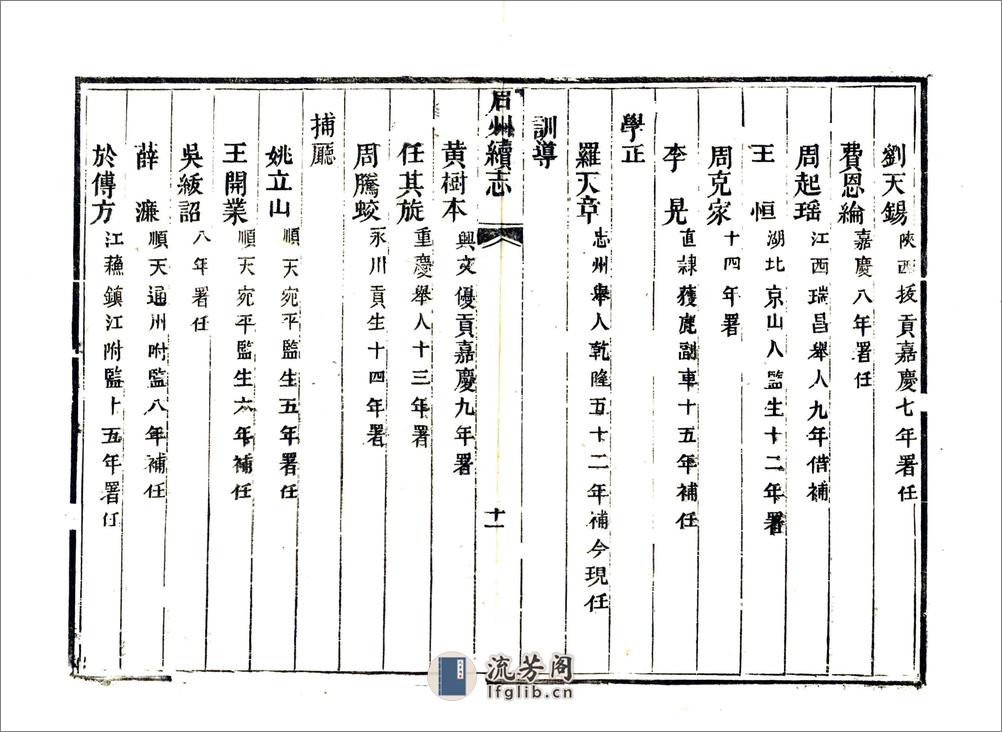 劉天錫 陝西拔貢嘉慶七年署任
費恩綸 嘉慶八年署任
周起瑶 江西瑞昌舉人九年借補
王恒 湖北京山人監生十二年署
周克家 十四年署
李晃 直隷獲鹿副車十五年補任
學正
羅天章 忠州舉人乾隆五十二年補今現任
訓導
眉州續志 十一
黄樹本 興文優貢嘉慶九年署
任其旋 重慶舉人十三年署
周騰蛟 永川貢生十四年署
捕廳
姚立山 順天宛平監生五年署任
王開業 順天宛平監生六年補任
吳紱詔 八年署任
薛濂 順天通州附監八年補任
於傳方 江蘓鎮江附監十五年署任
流芳阁
lfglib.cn